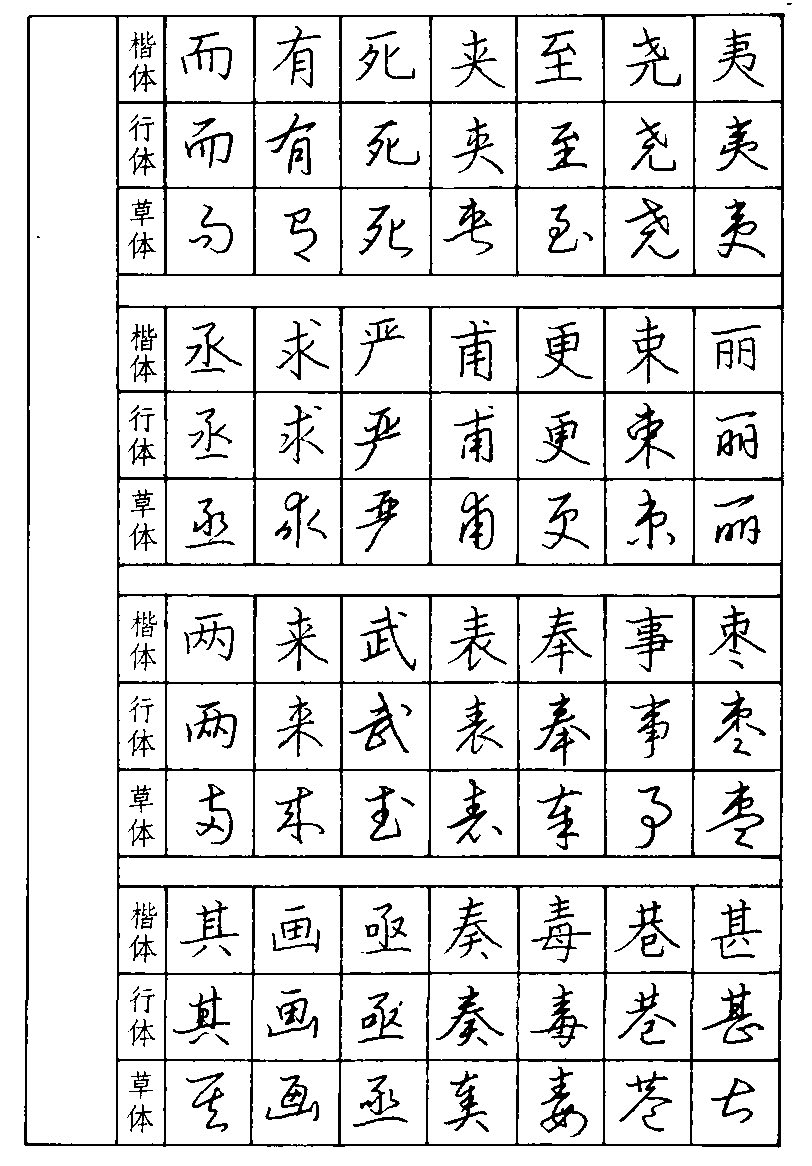 楷体 而 有 死 夹 至 尧 夷
行体 而 有 死 夹 至 尧 夷
草体 而 有 死 夹 至 尧 夷
楷体 丞 求 严 甫 更 束 丽
行体 丞 求 严 甫 更 束 丽
草体 丞 求 严 甫 更 束 丽
楷体 两 来 武 表 奉 事 枣
行体 两 来 武 表 奉 事 枣
草体 两 来 武 表 奉 事 枣
楷体 其 画 亟 奏 毒 巷 甚
行体 其 画 亟 奏 毒 巷 甚
草体 其 画 亟 奏 毒 巷 甚